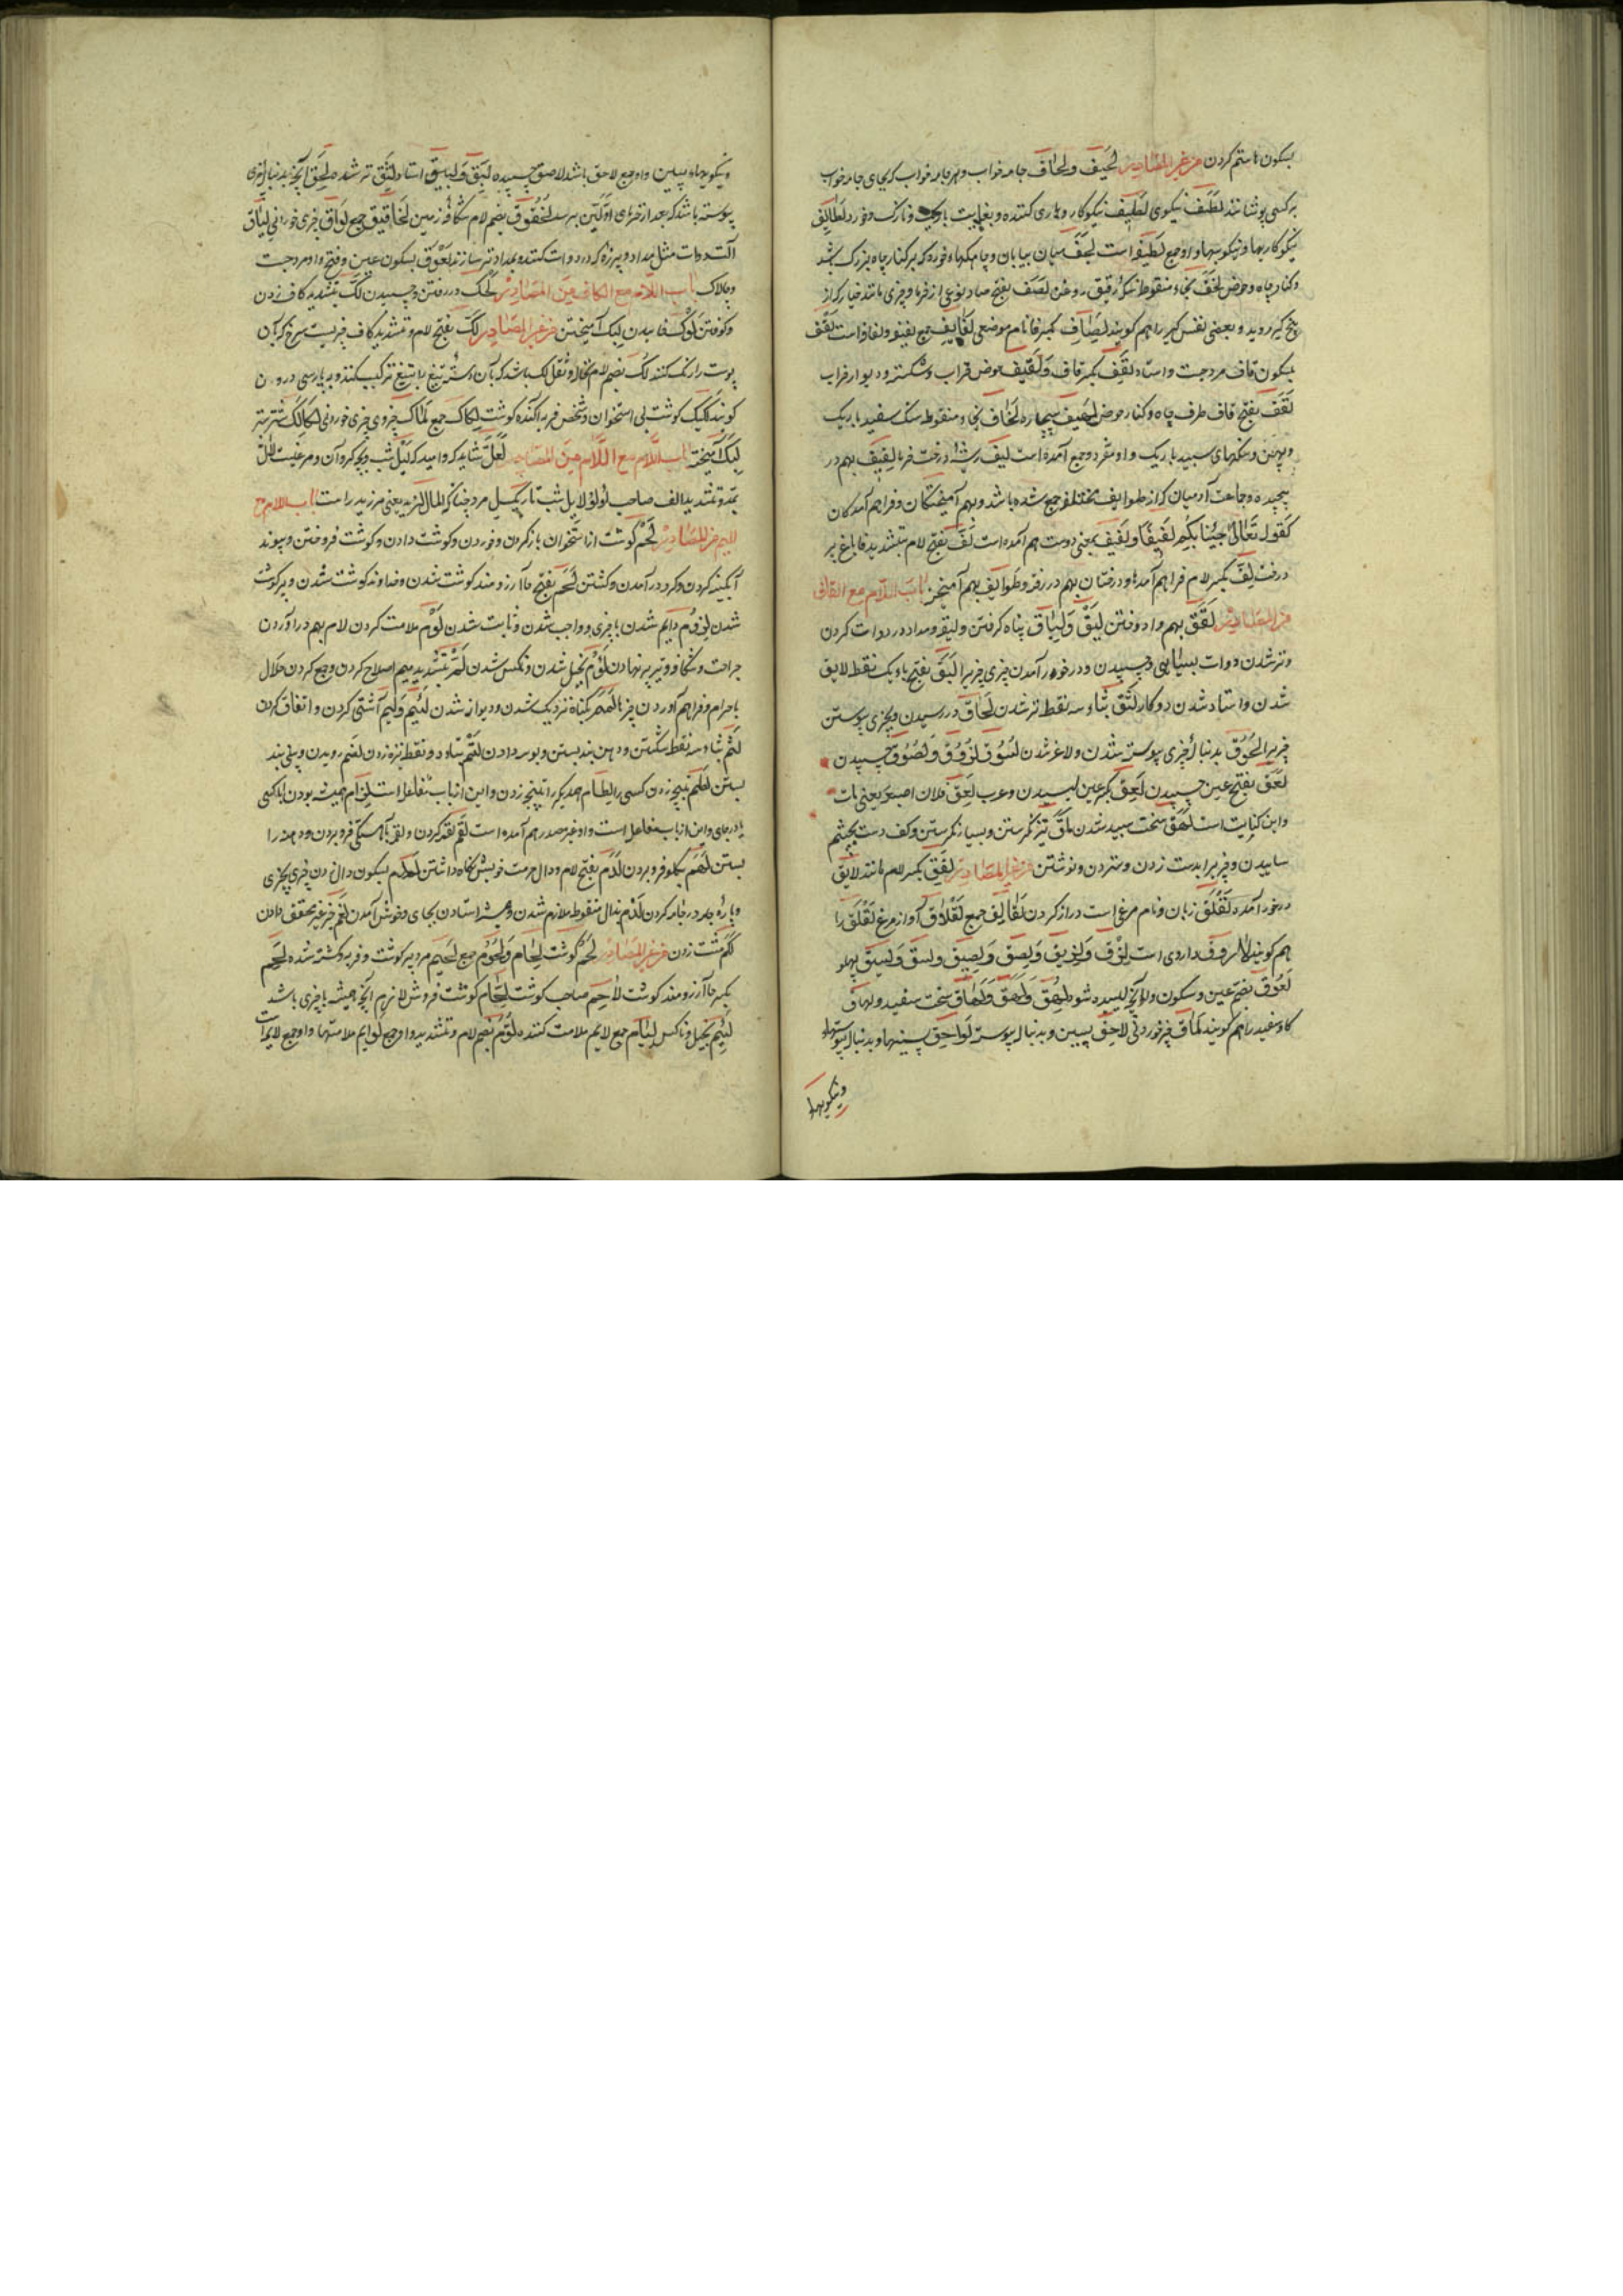 بسکون حا ستم کردن من غیر المصادر لَحِیف ولِحاف جامه خواب وهر جامه خواب که بجای جامه خواب
بر کسی پوشانند لَطَف نیکوی لَطیف نیکوکار و یاری کننده و بغایت باریک و نازک و خورد لَطایِف
نیکوکاریها و نیکوییها و او جمع لطیفه است لَجَف میان بیابان و جامکهاء خورد که بر کنار چاه بزرگ باشد
و کنار چاه و حوض لَخَف بخاء منقوطه رقیق روغن لَصَف بفتح صاد نوعی از خرما و چیزی مانند خیار که از
بیخ کبر روید و بعضی نفس کبر را هم کویند لَصاف بکسر فا نام موضعی لَفایِف جمع لفیفه و لفافه است لَقْف
بسکون قاف مرد چست و استاد لَقِف بکسر قاف و لَقیف حوض خراب و شکسته و دیوار خراب
لَقَف بفتح قاف طرف چاه و کنار حوض لَهیف بیچاره لِخاف بخاء منقوطه سنک سفید باریک
و پهن و سنکهای سپید باریک و او مفرد و جمع آمده است لیف ریشهٔ درخت خرما لَفیف بهم در
پیچیده و جماعت آدمیان که از طوایف مختلفه جمع شده باشد و بهم آمیختکان و فراهم آمدکان
کقوله تعالی جِئْنا بِکُم لَفیفًا و لَفیف بمعنی دوست هم آمده است لَفّ بفتح لام بتشدید فا باغ پر
درخت لِفّ بکسر لام فراهم آمدها و درختان بهم در رفته و طوایف بهم آمیخته باب اللام مع القاف
من المصادر لَفْق بهم وا دوختن لَیْق و لَیاق پناه کرفتن و لیقه و مداد در دوات کردن
و تر شدن دوات بسیاهی و چسپیدن و در خور آمدن چیزی چیزیرا لَبَق بفتح باء یک نقطه لایق
شدن و استاد شدن در کار لَثَق بثاء سه نقطه تر شدن لَحاق در رسیدن و بچیزی پیوستن
چیزیرا لُحوق بدنبال چیزی پیوسته شدن و لاغر شدن لُسُوق لُزُوق و لُصُوق چسپیدن
لَعَق بفتح عین چسپیدن لَعِق بکسر عین لیسیدن و عرب لَعِقَ فلان اصبعه یعنی مات
و این کنایت است لَهَق سخت سپید شدن لَمْق تیز نکریستن و بسیار نکریستن و کف دست بچشم
ساییدن و چیزیرا بدست زدن و ستردن و نوشتن من غیر المصادر لِفْق بکسر لام مانند لایق
در خور آمده لَقْلَق زبان و نام مرغی است دراز کردن لَقالِق جمع لَقْلاق آواز مرغ لَقْلَق را
هم کویند داروی است لِزْق و لَزیق و لِصْق و لَصیق و لِسْق و لَسیق پهلو
لَعُوق بضم عین و سکون واو آنچه لیسیده شود لَهِق و لَهَق و لَهاق سخت سفید و لهاق
کاو سفید را هم کویند لَماق چیز خوردنی لاحِق پسین و بدنبال پیوسته لَواحِق پسینها و بدنبال پیوستها
ونیکوییها
ونیکوییها و پسین و او جمع لاحق باشد لاصق چسپیده لَبِق و لَبیق استاد لَثِق تر شده لَحَق آنچه بدنبال چیزی
پیوسته باشد که بعد از خرمای اولین برسد لُخْقُوق بضم لام شکاف زمین لَخاقیق جمع لَواق چیزی خوردنی لَیاق
آلت دوات مثل مداد و پرزه که در دوات کنند و بمداد تر سازند لَعْوَق بسکون عین و فتح واو مرد چست
و چالاک باب اللام مع الکاف من المصادر لَحْک در رفتن و چسپیدن لَکّ بتشدید کاف زدن
و کوفتن لَوْک خاییدن لَبْک آمیختن من غیر المصادر لَکّ بفتح لام و تشدید کاف چیزیست سرخ که بآن
پوست را رنک کنند لُکّ بضم لام نخاله و ثفل لک باشد که بآن دستهٔ تیغ را بتیغ ترکیب کنند و بپارسی درون
کویند لَکیک کوشت بی استخوان و شخص فربه آکنده کوشت لِکاک جمع لَماک چیزی خوردنی لُکالِک شتر ستبر
لَبیک آمیخته باب اللام مع اللام من المصادر لَعَلَّ شاید که و امید که لَیْل شب و بچه کروان و مرغیست لَاّل
بمد و تشدید الف صاحب لؤلؤ لایل شب تاریک لِیَل مرد چنانکه المال لزید یعنی مر زید راست باب اللام مع
المیم من المصادر لَحْم کوشت از استخوان باز کردن و خوردن و کوشت دادن و کوشت فروختن و پیوند
آبکینه کردن و کرد در آمدن و کشتن لَحَم بفتح حا آرزومند کوشت شدن و خداوند کوشت شدن و پر کوشت
شدن لُزُوم دایم شدن با چیزی و واجب شدن و ثابت شدن لَوْم ملامت کردن لام بهم در آوردن
جراحت و شکاف و تیر پر نهادن لُؤْم بخیل شدن و ناکس شدن لَمّ بتشدید میم اصلاح کردن و جمع کردن حلال
با حرام و فراهم آوردن چیزها لَمَم بکناه نزدیک شدن و دیوانه شدن لَئِم و لَیم آشتی کردن و اتفاق کردن
لَثْم بثاء سه نقطه شکستن و دهن بند بستن و بوسه دادن لَتْم بتاء دو نقطه نیزه زدن لَثَم رویدن و بینی بند
بستن لَطْم طپنچه زدن کسی را لِطام همدیکر را طپنچه زدن و این از باب مفاعله است لِزام همیشه بودن با کسی
یا در جای و این از باب مفاعله است و او غیر مصدر هم آمده است لَقْم لقمه کردن و لقمه بآهستکی فرو بردن و دهن را
بستن لَهْم بکلو فرو بردن لَدَم بفتح لام و دال حرمت خویش نکاه داشتن لَدْم بسکون دال زدن چیزی بچیزی
و پاره بر جامه کردن لَذَم بذال منقوطه ملازم شدن و همیشه استادن بجای و خوش آمدن لَغْم خبر غیر محقق دادن
لَکْم مشت زدن من غیر المصادر لَحْم کوشت لِحام و لُحُوم جمع لَحیم مرد پر کوشت و فربه و کشته شده لَحِم
بکسر حا آرزومند کوشت لاحِم صاحب کوشت لَحّام کوشت فروش لازم آنچه همیشه با چیزی باشد
لَئیم بخیل و ناکس لِئام جمع لایم ملامت کننده لُوَّم بضم لام و تشدید واو جمع لَوایم ملامتها و او جمع لایمه است